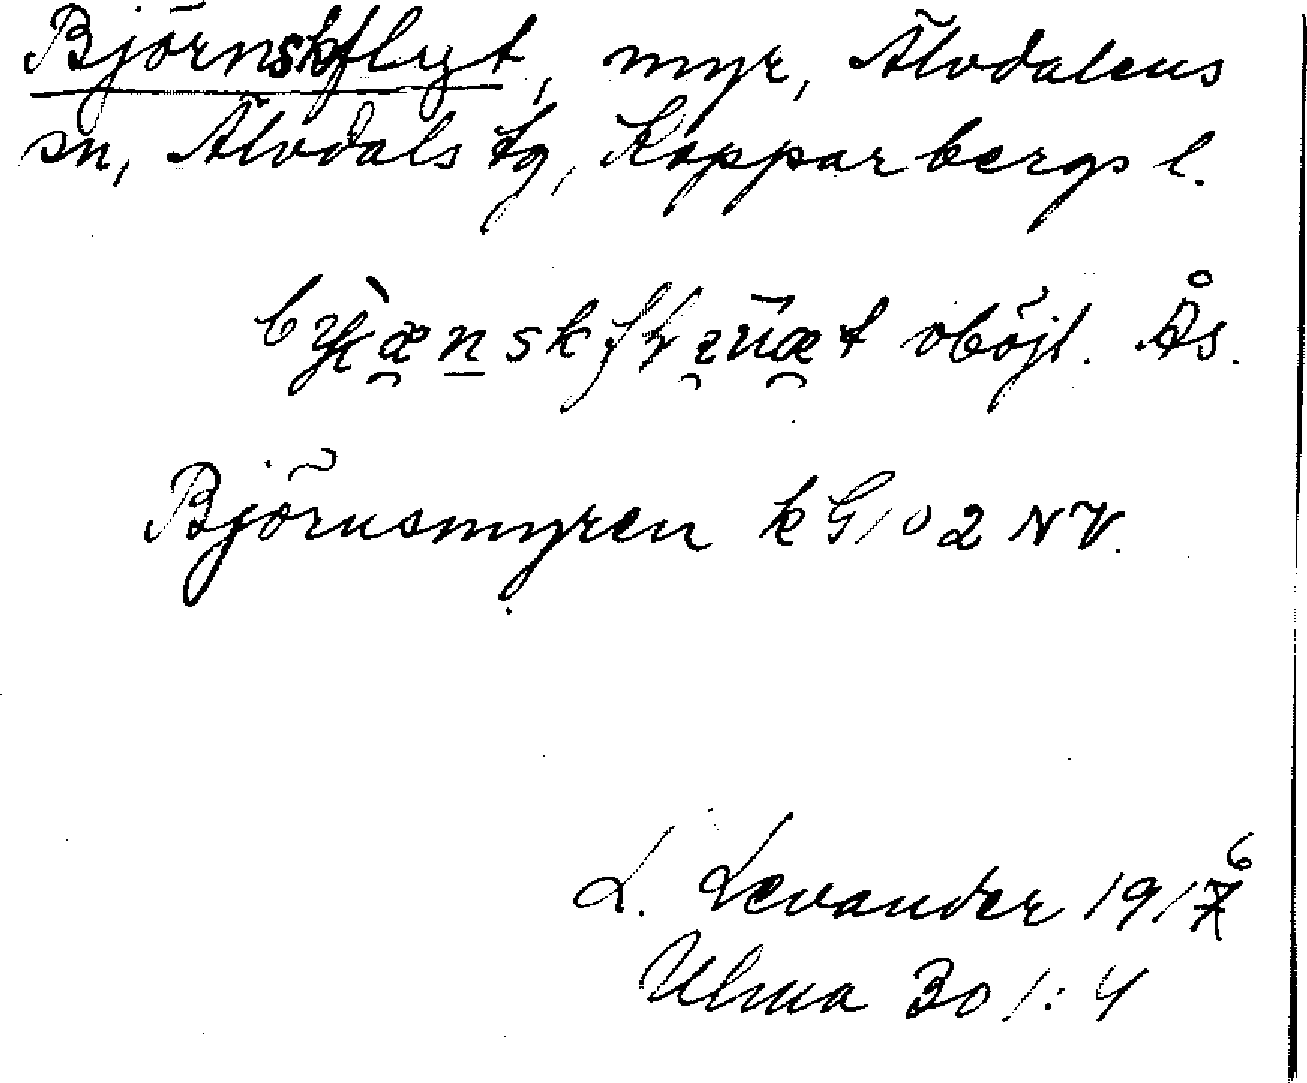 Björnskflyt, myr, Älvdalens
sn, Älvdals tg, Kopparbergs l.
oböjl. Ås.
Björnsmyren k G 102 NV.
L. Levander 1916
Ulma 301:4